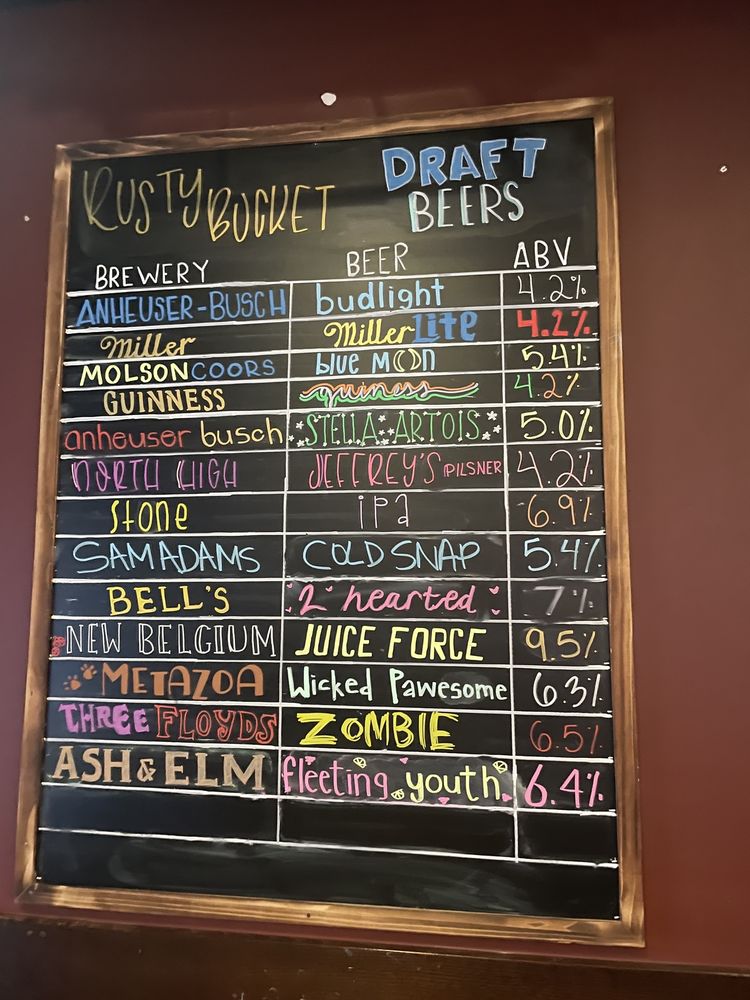 RUSTY BUCKET DRAFT BEERS
BREWERY BEER ABV
ANHEUSER-BUSCH budlight 4.2%
Miller Miller Lite 4.2%
MOLSON COORS blue MOON 5.4%
GUINNESS guiness 4.2%
anheuser busch STELLA ARTOIS 5.0%
NORTH HIGH JEFFREY'S PILSNER 4.2%
Stone ipa 6.9%
SAM ADAMS COLD SNAP 5.4%
BELL'S 2 hearted 7%
NEW BELGIUM JUICE FORCE 9.5%
METAZOA Wicked Pawesome 6.3%
THREE FLOYDS ZOMBIE 6.5%
ASH & ELM fleeting youth 6.4%